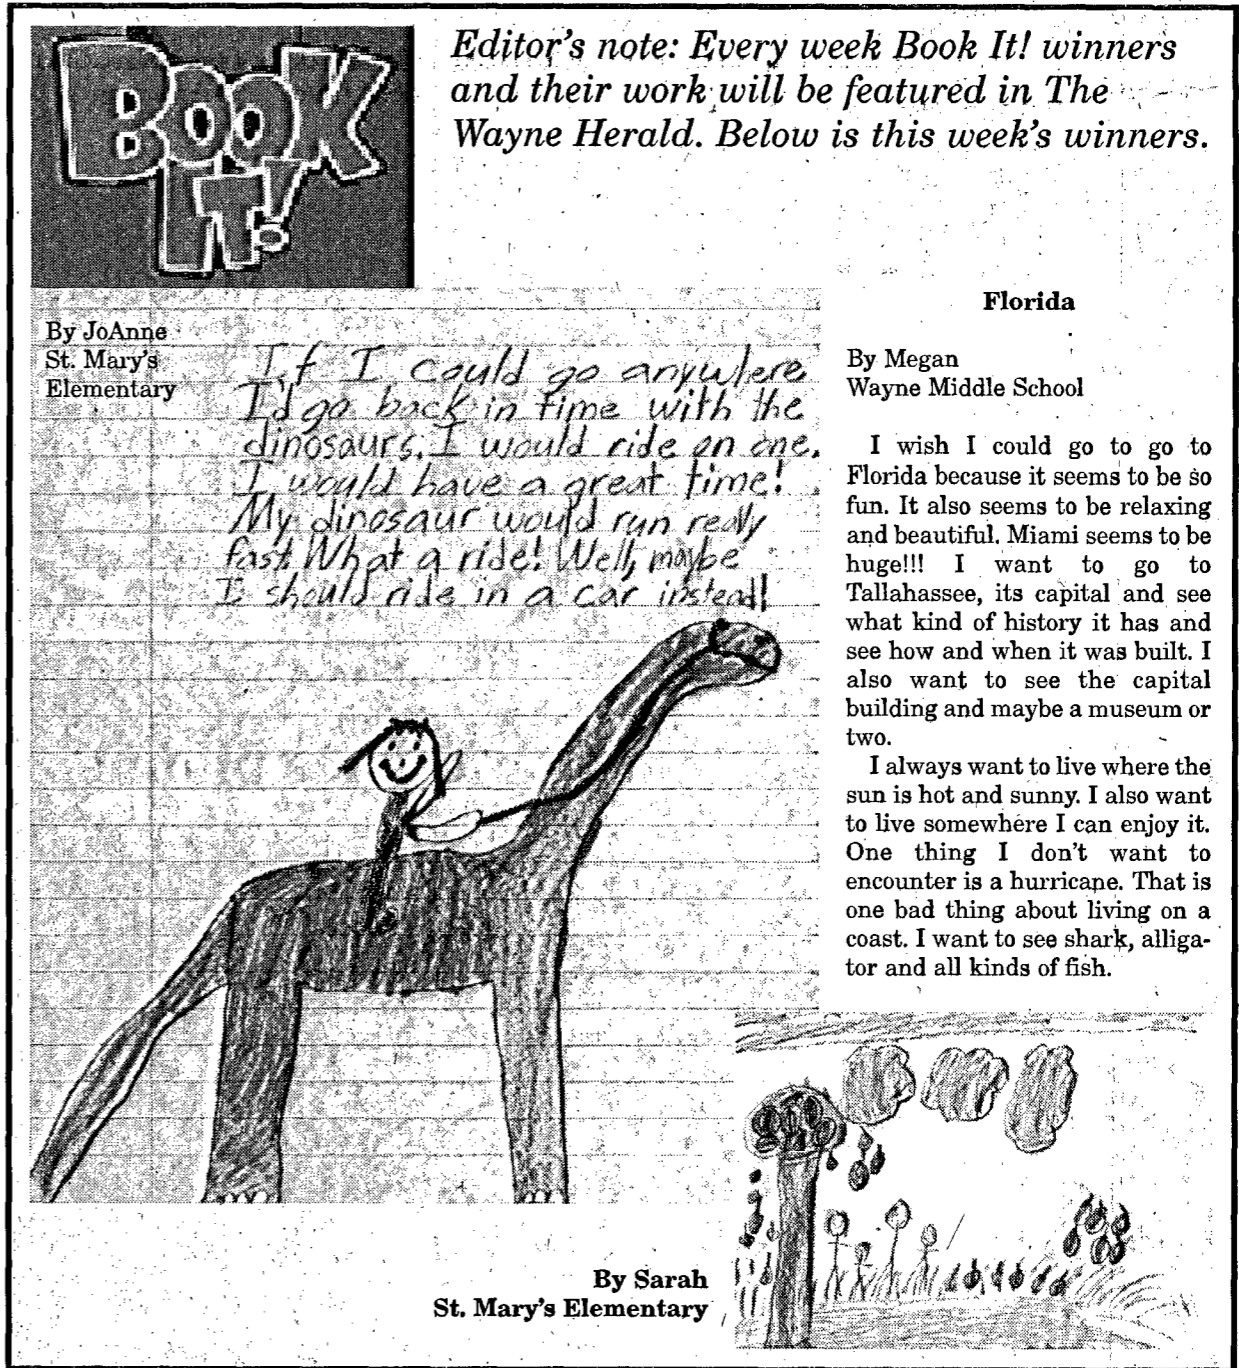 BOOK
IT!
Editor's note: Every week Book It! winners
and their work will be featured in The
Wayne Herald. Below is this week's winners.
By JoAnne
St. Mary's
Elementary
If I could go anywhere
I'd go back in time with the
dinosaurs. I would ride on one.
I would have a great time!
My dinosaur would run really
fast What a ride! Well, maybe
I should ride in a car instead!
Florida
By Megan
Wayne Middle School
I wish I could go to go to
Florida because it seems to be so
fun. It also seems to be relaxing
and beautiful. Miami seems to be
huge!!! I want to go to
Tallahassee, its capital and see
what kind of history it has and
see how and when it was built. I
also want to see the capital
building and maybe a museum or
two.
I always want to live where the
sun is hot and sunny. I also want
to live somewhere I can enjoy it.
One thing I don't want to
encounter is a hurricane. That is
one bad thing about living on a
coast. I want to see shark, alliga-
tor and all kinds of fish.
By Sarah
St. Mary's Elementary